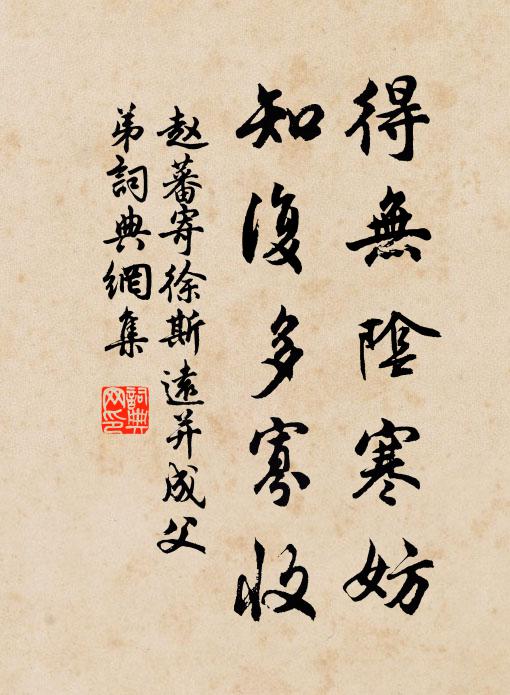 得無陰寒妨
知復多寡收
赵蕃寄徐斯遠并成父
弟詞典網集
詞典网印